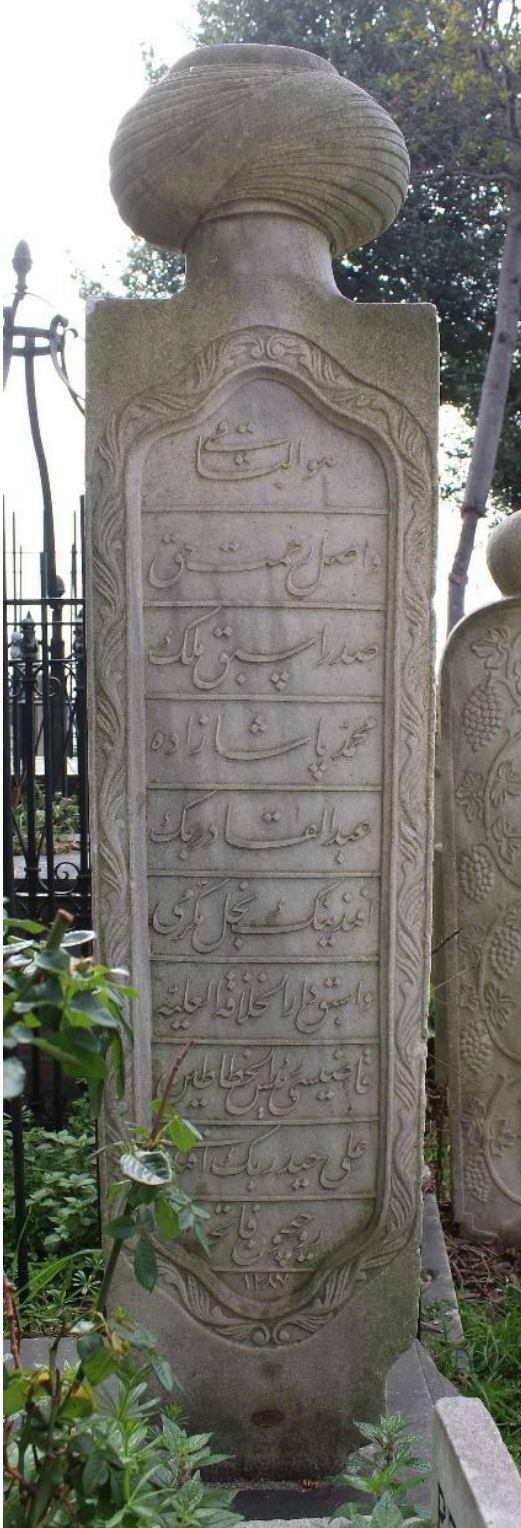 هو الباقی
واصل رحمت حق
صدر اسبق ملك
محمد پاشا زاده
عبد القادر بك
افندینك نجل مكرمی
واسبق دار الخلافة العلیه
قاضیسی رئیس الخطاطین
علی حیدر بك
روحیچون فاتحه
١٢٨٧